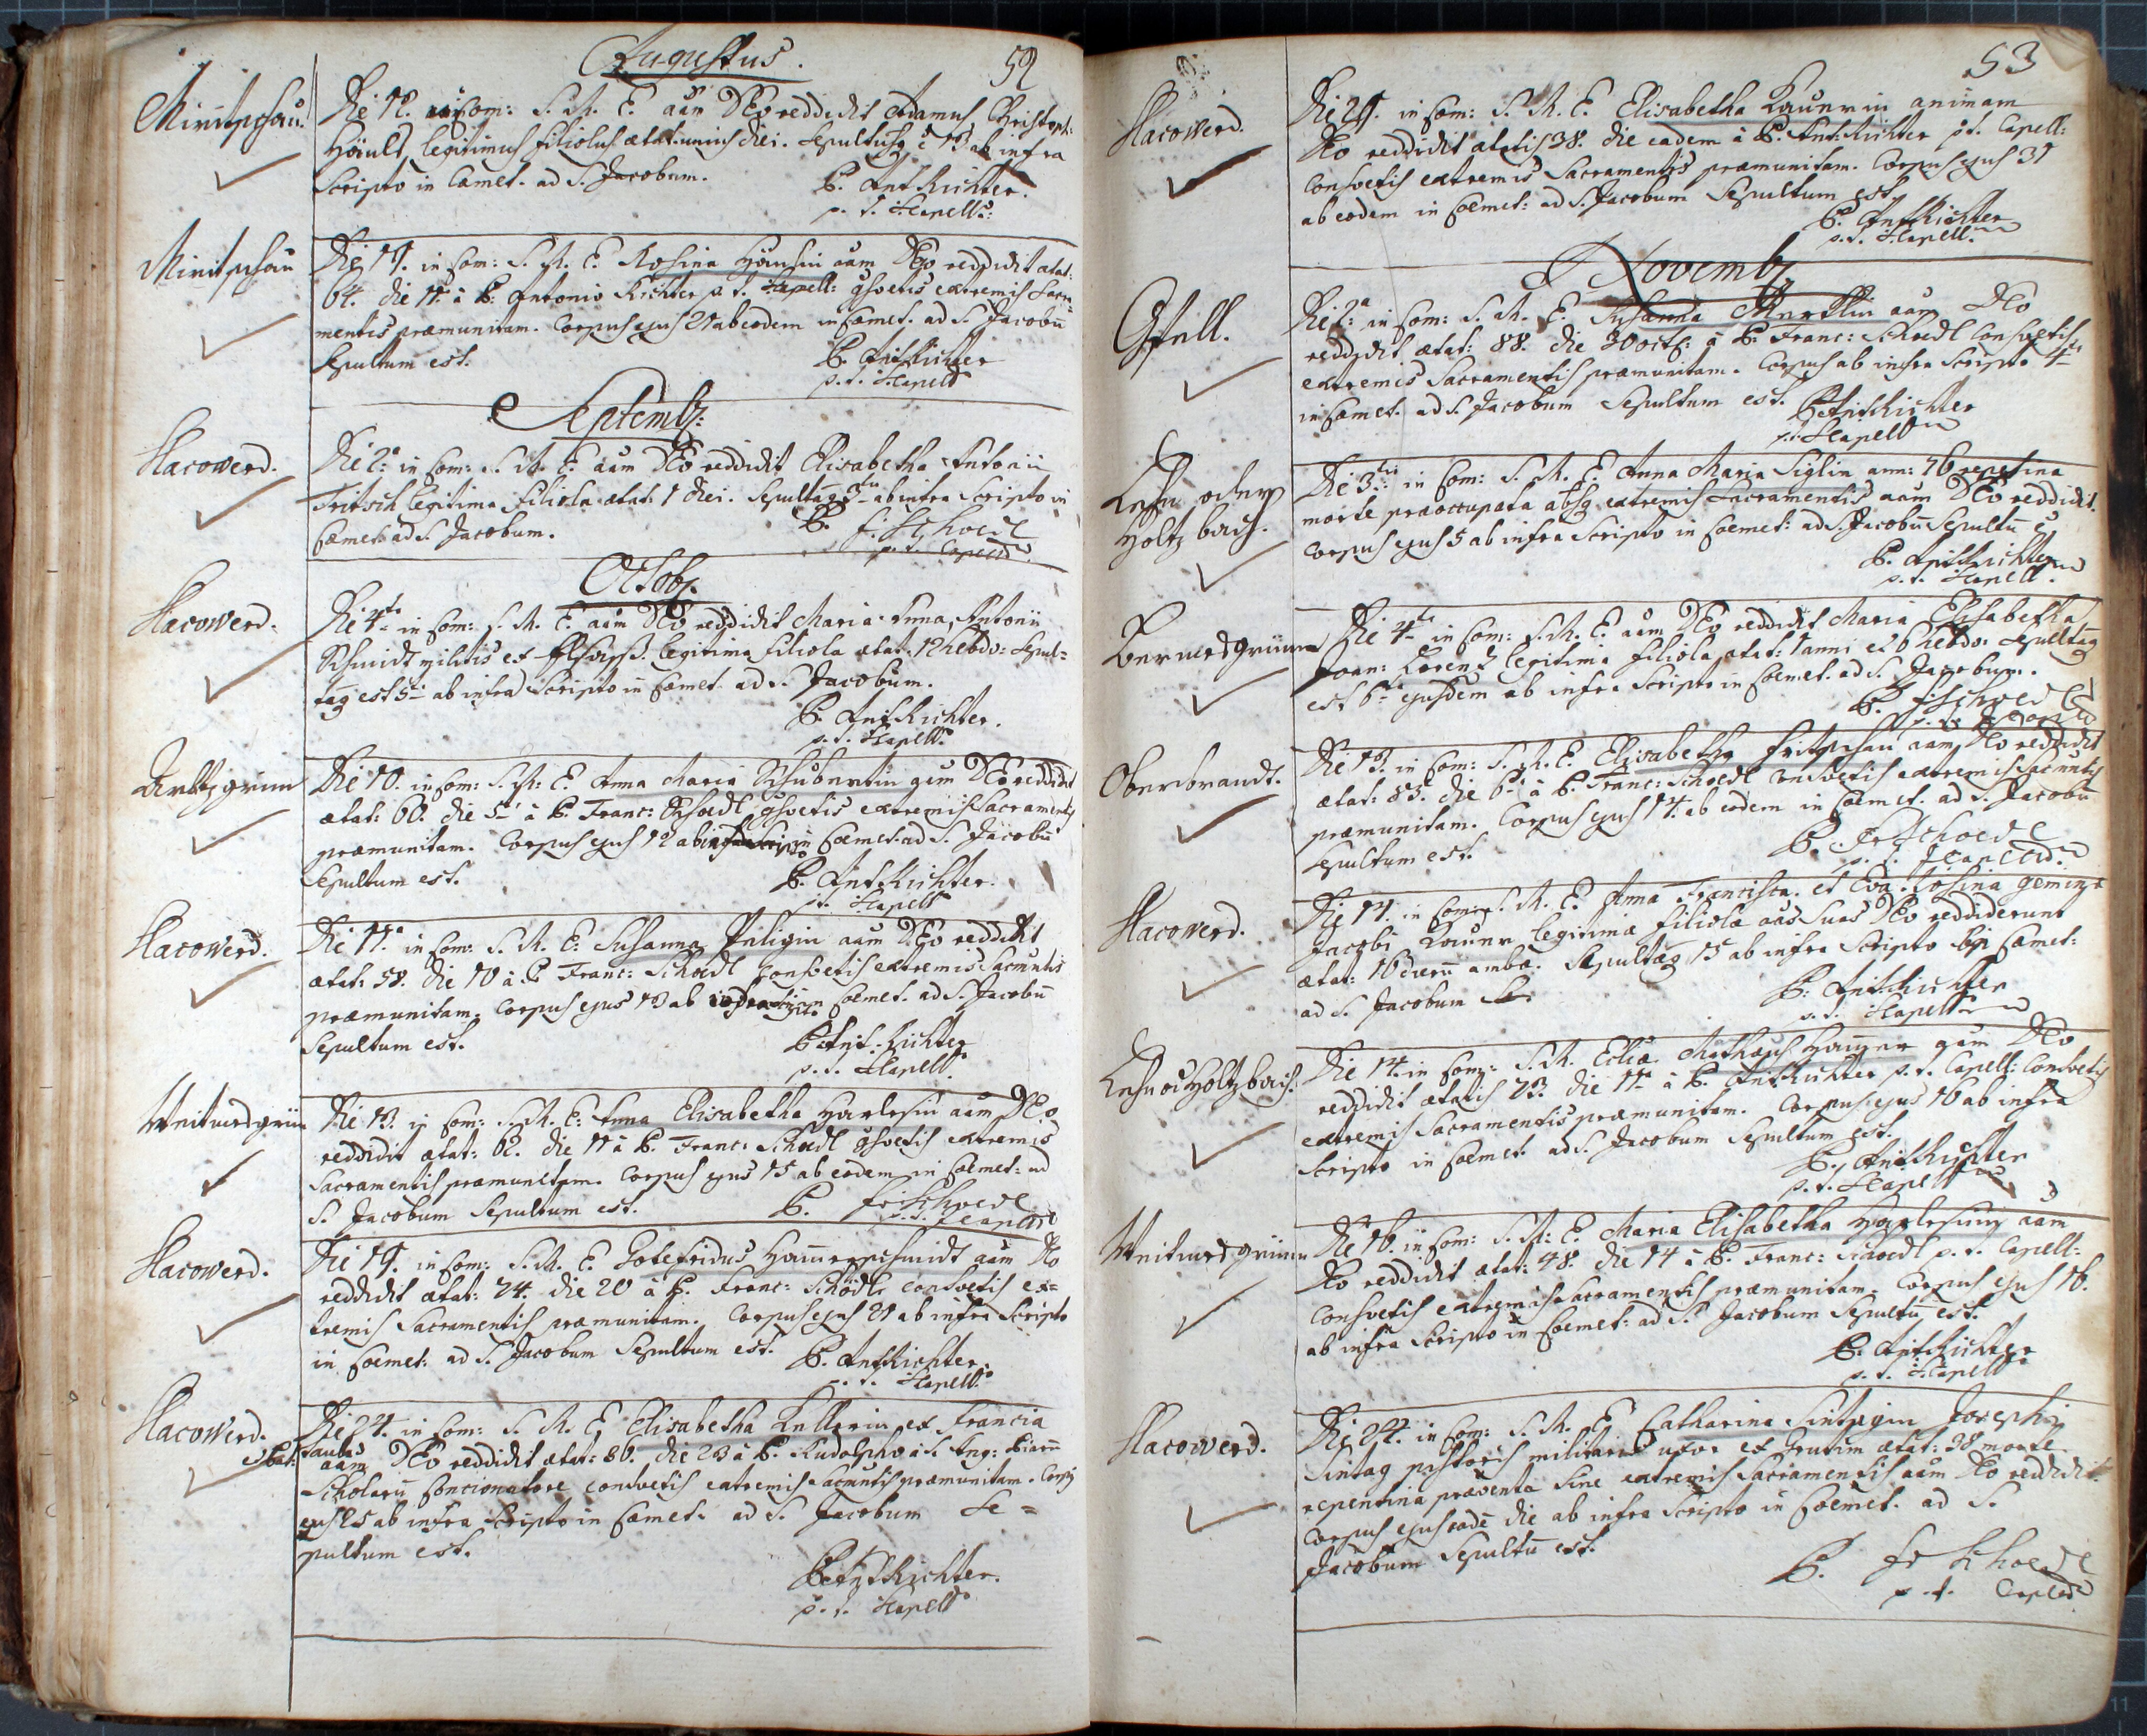 Augustus.
52
Die 12. in Com: S. R. E. aam DEo reddidit Adamus Christoph:
legitimus filiolus ætat: unius diei. Sepultusq; ē 13 ab infra
Scripto in Cœmet. ad S. Jacobum.
P. Ant: Richter.
p. t. Capell:
Die 19. in Com: S. R. E. Rosina aam DEo reddidit ætat:
64. die 17 à P. Antonio Richter p. t. Capell: gsvetis extremis Sacra-
mentis præmunitam. Corpus ejus 21 ab eodem in Cœmet. ad S. Jacobū
Sepultum est.
P. Ant: Richter
p. t. Capell:
Septemb:
Slacowerd.
Die 2ᵃ in Com: S. R. E. aam DEo reddidit Elisabetha Antonii
Fritsch legitima filiola ætat: 1 diei. Sepultaq; 3tia ab infra Scripto in
Cœmet: ad S. Jacobum.
P. f: Schoedl
p. t. Capell:
Octob:
Slacowerd.
Die 4ta in Com: S. R. E. aam DEo reddidit Maria Anna, Antonii
Schmidt militis ex legitima filiola ætat: 12 hebdo: Sepul-
taq; est 5ta ab infra Scripto in Cœmet: ad S. Jacobum.
P. Ant: Richter.
p. t. Capell:
Die 10. in Com: S. R. E. Anna Maria Schubertin aam DEo reddidit
ætat: 60. die 5ta à P. Franc: Schœdl gsvetis extremis Sacramentis
præmunitam. Corpus ejus 12 ab infra Scripto in Cœmet: ad S. Jacobū
Sepultum est.
P. Ant: Richter.
p. t. Capell:
Slacowerd.
Die 11ᵃ in Com: S. R. E. Susanna aam DEo reddidit
ætat: 58. die 10 à P. Franc: Schœdl consvetis extremis Sacmntis
præmunitam. Corpus ejus 13 ab in Cœmet. ad S. Jacobū
Sepultum est.
P. Ant: Richter
p. t. Capell:
Die 13. in Com: S. R. E. Anna Elisabetha Harlesin aam DEo
reddidit ætat: 62. die 11 à P. Franc: Schœdl gsvetis extremis
Sacramentis præmunitam. Corpus ejus 15 ab eodem in Cœmet: ad
S. Jacobum Sepultum est. P. fr: Schoedl
p. t. Capell:
Slacowerd.
Die 19. in Com: S. R. E. Gotefridus Hamerschmidt aam DEo
reddidit ætat: 74. die 20 à P. Franc: Schödl consvetis ex-
tremis Sacramentis præmunitam. Corpus ejus 21 ab infra Scripto
in Cœmet: ad S. Jacobum Sepultum est. P. Ant: Richter
p. t. Capell:
Slacowerd.
Die 24. in Com: S. R. E. Elisabetha Kellerin ex Francia
aam DEo reddidit ætat: 80. die 23 à P. Rudolpho à S. Ang: Piarū
Scholarū Concionatore consvetis extremis Sacmntis præmunitam. Corpq
ejus 25 ab infra Scripto in Cœmet: ad S. Jacobum Se=
pultum est.
P. Ant: Richter.
p. t. Capell:
53
Slacowerd.
Die 29. in Com: S. R. E. Elisabetha animam
DEo reddidit ætatis 38. die eadem à P. Ant: Richter p. t. Capell:
consvetis extremis Sacramentis præmunitam. Corpus ejus 31
ab eodem in Cœmet: ad S. Jacobum Sepultum est.
P. Ant: Richter
p. t. Capell:
Novemb:
Gfell.
Die 2ᵃ in Com: S. R. E. Susanna Merklin aam DEo
reddidit ætat: 88. die 30 octb: à P. Franc: Schœdl Consvetis
extremis Sacramentis præmunitam. Corpus ab infra Scripto 4ta
in Cœmet: ad S. Jacobum Sepultum est. P. Ant: Richter
p. t. Capell:
Lehn oder
Holtzbach.
Die 3tia in Com: S. R. E. Anna Maria Siglin ann: 76 repetina
morte præoccupata absq; extremis Sacramentis aam DEo reddidit.
Corpus ejus 5 ab infra Scripto in Cœmet: ad S. Jacobū Sepultū ē
P. Ant: Richter
p. t. Capell:
Die 4ta in Com: S. R. E. aam DEo reddidit Maria Elisabetha
Joan: Lorenz legitima filiola ætat: 1 anni et 6 hebdo: Sepultaq;
est 6ta ejusdem ab infra Scripto in Cœmet. ad S. Jacobum.
P. f. Schoedl
p. t. Capell:
Oberbrandt.
Die 13. in Com: S. R. E. Elisabetha aam DEo reddidit
ætat: 83. die 6ta à P. Franc: Schoedl consvetis extremis Sacmntis
præmunitam. Corpus ejus 14. ab eodem in Cœmet. ad S. Jacobū
Sepultum est.
P. Fr: Schoedl
p. t. Capell:
Slacowerd.
Die 14. in Com: S. R. E. Anna Francisca et Eva Rosina geminæ
Jacobi legitimæ filiolæ aas Suas DEo reddiderunt
ætat: 16 dierū ambæ. Sepultæq; 15 ab infra Scripto in Cœmet:
ad S. Jacobum
P: Ant: Richter
p. t. Capell:
Lehn od Holtzbach.
Die 14. in Com: S. R. Eccliæ Mathæus aam DEo
reddidit ætatis 73. die 11ma à P. Ant: Richter p. t. Capell: Consvetis
extremis Sacramentis præmunitam. Corpus ejus 16 ab infra
Scripto in Cœmet: ad S. Jacobum Sepultum est.
P. Ant: Richter
p. t. Capell:
Die 16. in Com: S. R. E. Maria Elisabetha aam
DEo reddidit ætat: 48. die 14 à P. Franc: Schoedl p. t. Capell:
Consvetis extremis Sacramentis præmunitam. Corpus ejus 16.
ab infra Scripto in Cœmet: ad S. Jacobum Sepultū est.
P. Ant: Richter
p. t. Capell:
Slacowerd.
Die 24. in Com: S. R. E. Catharina Josephi
Sintag pistoris militaris uxor ex ætat: 38 morte
repentina præventa Sine extremis Sacramentis aam DEo reddidit.
Corpus ejus eadē die ab infra Scripto in Cœmet. ad S.
Jacobum Sepultū est.
P. fr: Schoedl
p. t. Capell: